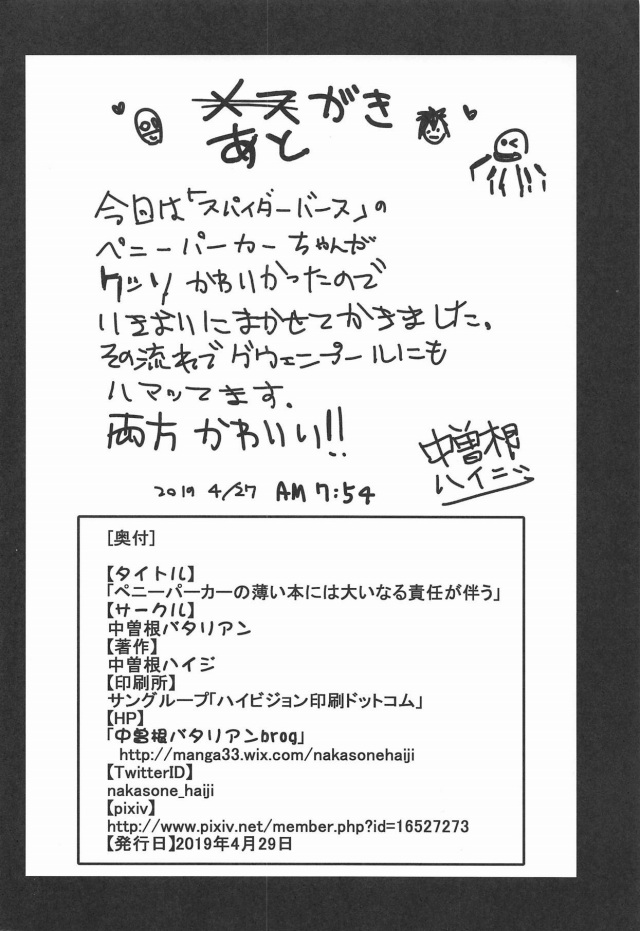 メスがき
あと
今日は「スパイダーバース」の
ペニーパーカーちゃんが
クッソかわいかったので
いきおいにまかせてかきました。
その流れでグウェンプールにも
ハマッてます.
両方かわいい!!
中曽根
ハイジ
2019 4/27 AM 7:54
[奥付]
【タイトル】
「ペニーパーカーの薄い本には大いなる責任が伴う」
【サークル】
中曽根バタリアン
【著作】
中曽根ハイジ
【印刷所】
サングループ「ハイビジョン印刷ドットコム」
【HP】
「中曽根バタリアンbrog」
http://manga33.wix.com/nakasonehaiji
【TwitterID】
nakasone_haiji
【pixiv】
http://www.pixiv.net/member.php?id=16527273
【発行日】2019年4月29日